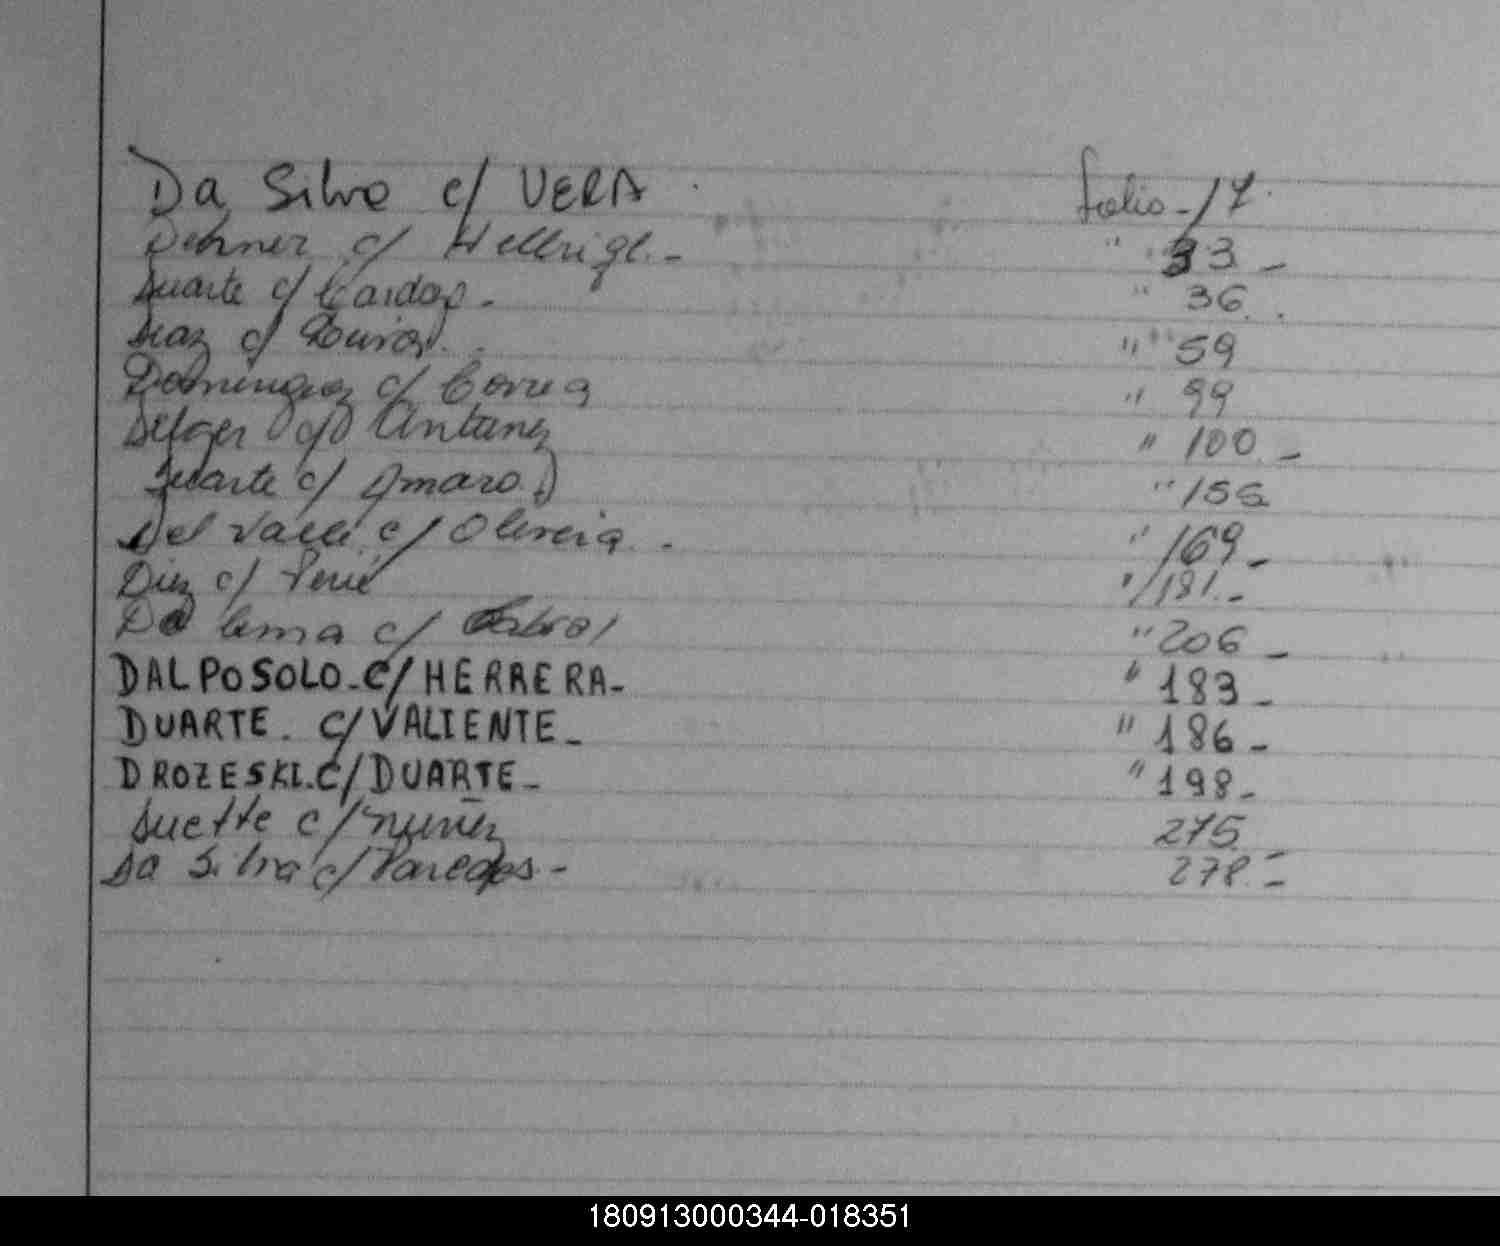 Da Silva c/ VERA folio - 17.
Dehner c/ Hellrigl. - " 33 -
Duarte c/ Cardozo - " 36.
Diaz c/ " 59
Dominguez c/ Correa " 99
c/ Antunez " 100. -
Duarte c/ Amaro " 156
Del Valle c/ Oliveira. - " 169 -
Diez c/ " 181. -
Da Lima c/ Cabral " 206 -
DALPOSOLO - C/ HERRERA - " 183 -
DUARTE - C/ VALIENTE - " 186 -
DROZESKI - C/ DUARTE - " 198 -
Duette c/ Nuñez 275
Da Silva c/ Paredes - 278. -
180913000344-018351